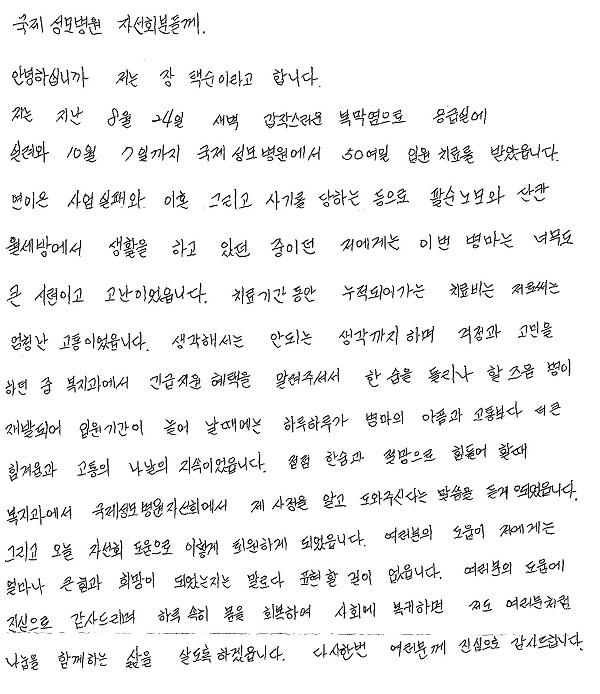 국제 성모병원 자선회분들께.
안녕하십니까 저는 장 택순이라고 합니다.
저는 지난 8월 24일 새벽 갑작스러운 복막염으로 응급실에
실려와 10월 7일까지 국제성모병원에서 50여일 입원 치료를 받았읍니다.
연이은 사업실패와 이혼 그리고 사기를 당하는 등으로 팔순노모와 단칸
월세방에서 생활을 하고 있던 중이던 저에게는 이번 병마는 너무도
큰 시련이고 고난이었읍니다. 치료기간동안 누적되어가는 치료비는 저로써는
엄청난 고통이었읍니다. 생각해서는 안되는 생각까지 하며 걱정과 고민을
하던 중 복지과에서 긴급지원 혜택을 알려주셔서 한 숨을 돌리나 할 즈음 병이
재발되어 입원기간이 늘어 날때에는 하루하루가 병마의 아픔과 고통보다 더 큰
힘겨움과 고통의 나날의 지속이었읍니다. 점점 한숨과 절망으로 힘들어 할때
복지과에서 국제성모병원자선회에서 제 사정을 알고 도와주신다는 말씀을 듣게 되었읍니다.
그리고 오늘 자선회 도움으로 이렇게 퇴원하게 되었읍니다. 여러분의 도움이 저에게는
얼마나 큰힘과 희망이 되었는지는 말로다 표현할 길이 없읍니다. 여러분의 도움에
진심으로 감사드리며 하루 속히 몸을 회복하여 사회에 복귀하면 저도 여러분처럼
나눔을 함께하는 삶을 살도록 하겠읍니다. 다시한번 여러분께 진심으로 감사드립니다.